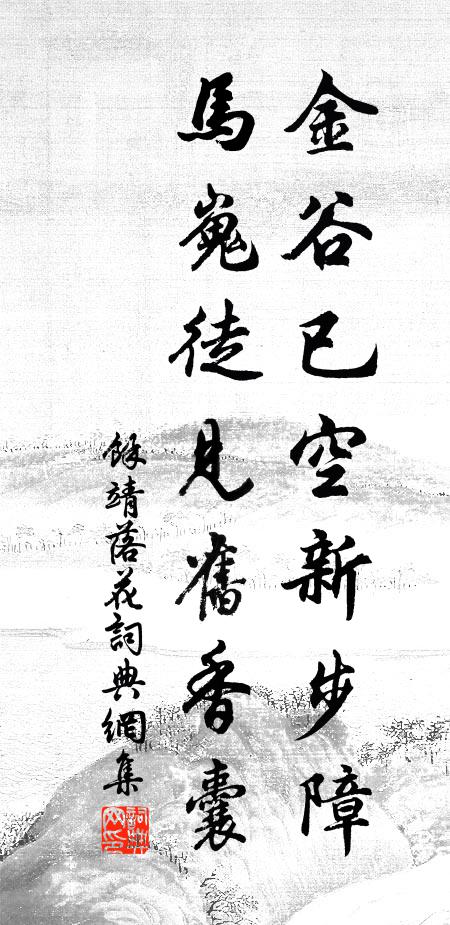 金谷已空新步障
馬嵬徒見舊香囊
餘靖落花詞典網集